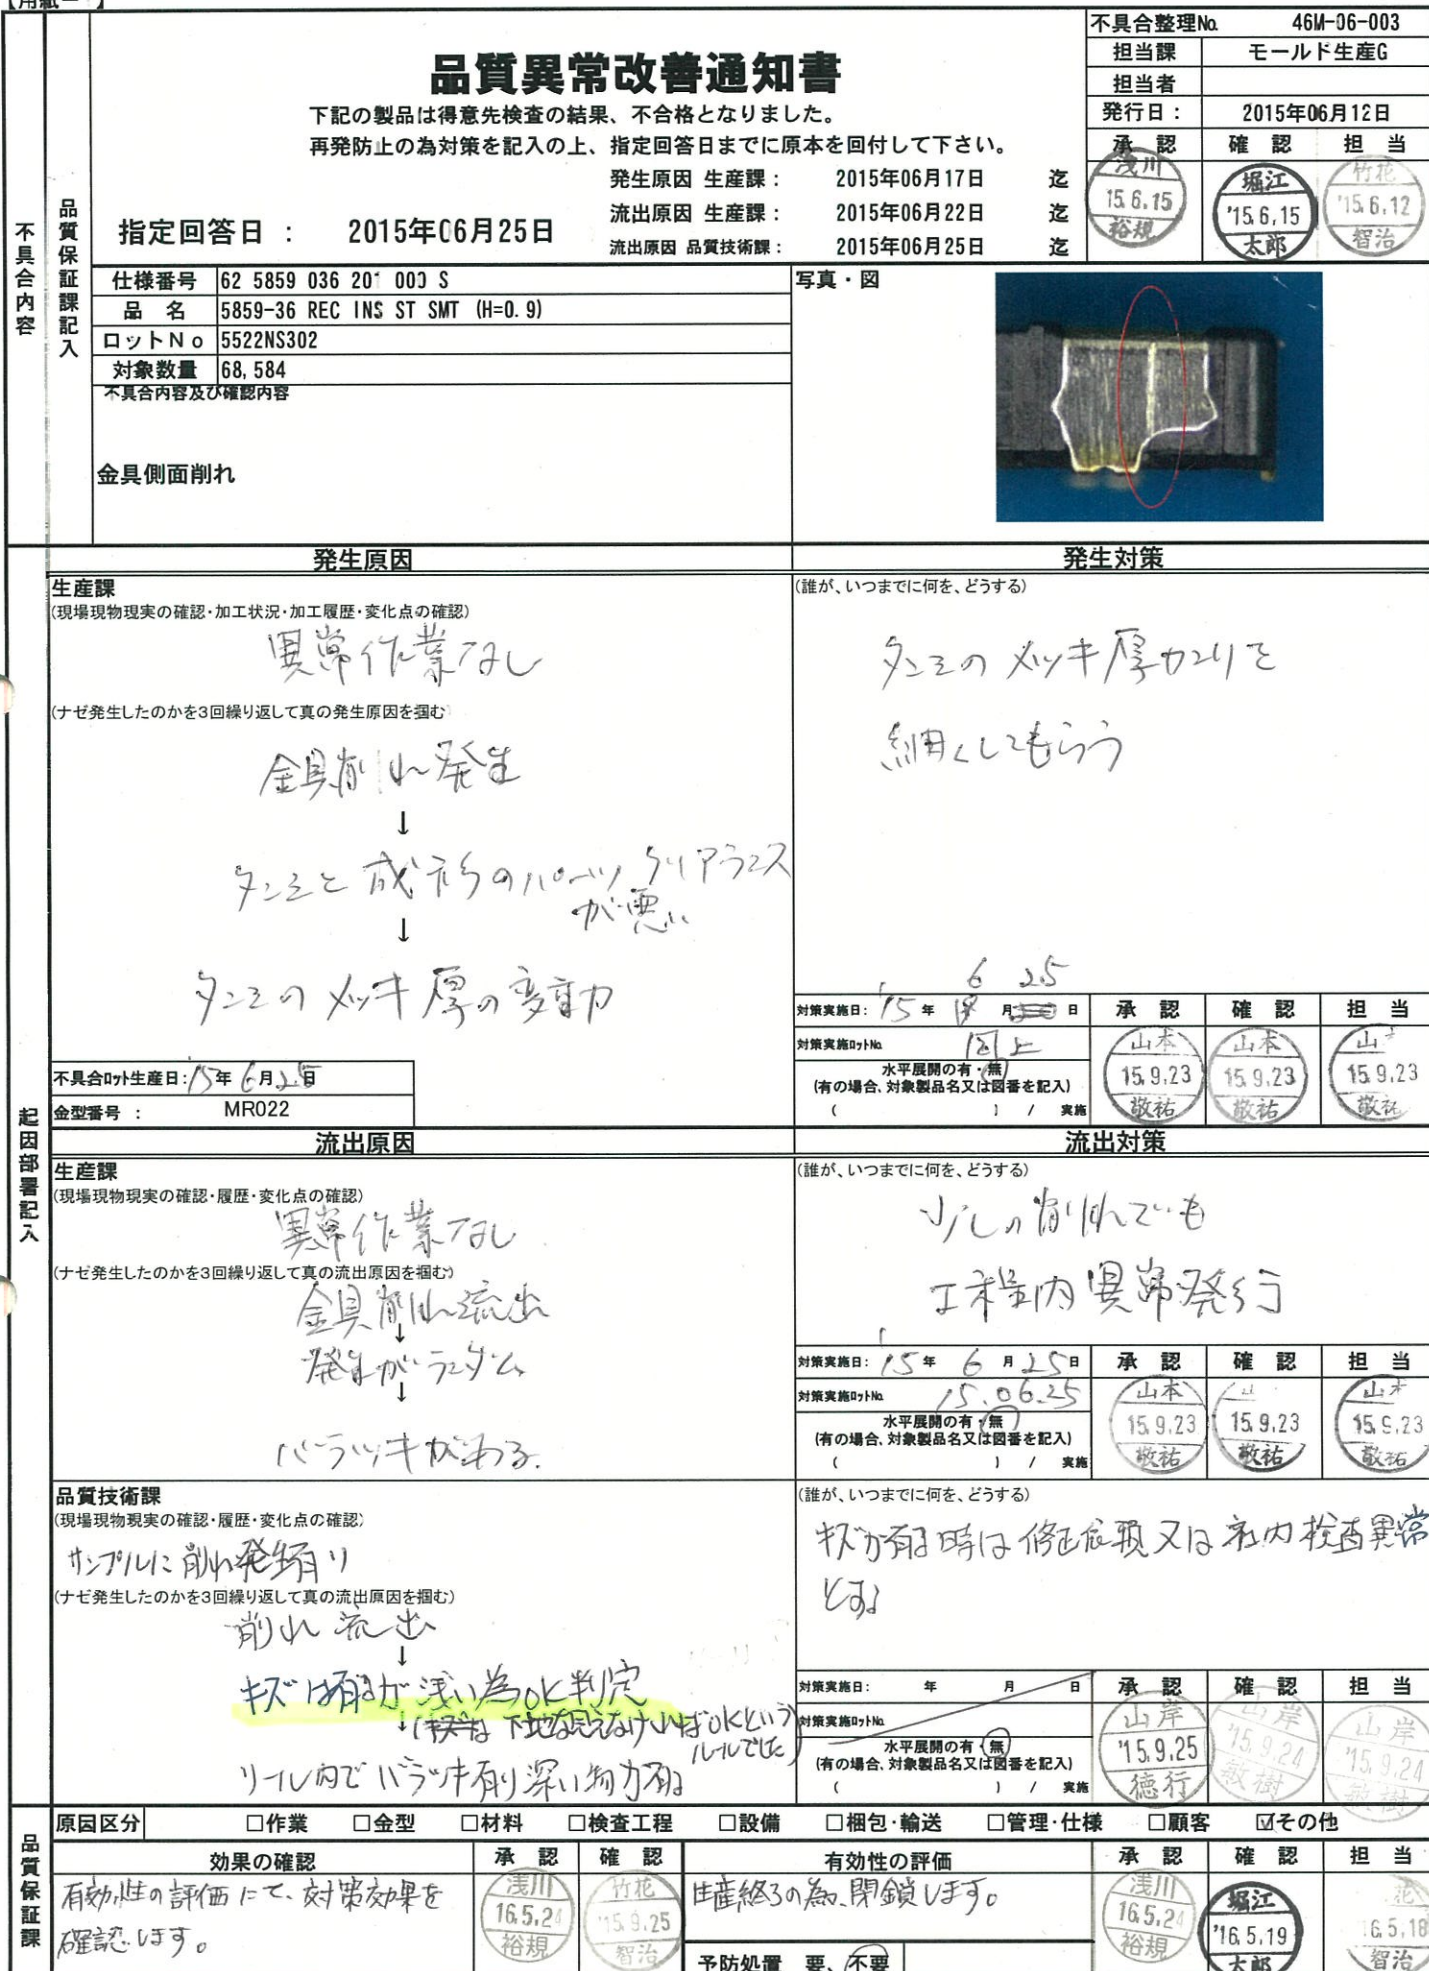 不具合整理No. 46M-06-003
担当課 モールド生産G
担当者
発行日： 2015年06月12日
品質異常改善通知書
下記の製品は得意先検査の結果、不合格となりました。
再発防止の為対策を記入の上、指定回答日までに原本を回付して下さい。
承認 確認 担当
浅川 15.6.15 裕規
堀江 '15.6.15 太郎
竹花 '15.6.12 智治
発生原因 生産課： 2015年06月17日 迄
流出原因 生産課： 2015年06月22日 迄
流出原因 品質技術課： 2015年06月25日 迄
指定回答日 ： 2015年06月25日
不具合内容
品質保証課記入
仕様番号 62 5859 036 201 000 S
品名 5859-36 REC INS ST SMT (H=0.9)
ロットNo 5522NS302
対象数量 68,584
不具合内容及び確認内容
金具側面削れ
写真・図
起因部署記入
発生原因
生産課
(現場現物現実の確認・加工状況・加工履歴・変化点の確認)
異常作業なし
(ナゼ発生したのかを3回繰り返して真の発生原因を掴む
金具削れ発生
↓
タンシと成形のパーツ クリアランス
が悪い
↓
タンシのメッキ厚の変動
不具合ロット生産日：'15年6月25日
金型番号 ： MR022
発生対策
(誰が、いつまでに何を、どうする)
タンシのメッキ厚カンリを
細くしてもらう
6 25
対策実施日： '15年 月 日
対策実施ロットNo. 同上
水平展開の有・無
(有の場合、対象製品名又は図番を記入)
( ) / 実施
承認 確認 担当
山本 15.9.23 敬祐
山本 15.9.23 敬祐
山本 15.9.23 敬祐
流出原因
生産課
(現場現物現実の確認・履歴・変化点の確認)
異常作業なし
(ナゼ発生したのかを3回繰り返して真の流出原因を掴む)
金具削れ流出
↓
発生がランダム
↓
バラツキがある.
流出対策
(誰が、いつまでに何を、どうする)
少しの削れでも
工程内異常発行
対策実施日： '15年 6月25日
対策実施ロットNo. 15.06.25
水平展開の有・無
(有の場合、対象製品名又は図番を記入)
( ) / 実施
承認 確認 担当
山本 15.9.23 敬祐
山 15.9.23 敬祐
山本 15.9.23 敬祐
品質技術課
(現場現物現実の確認・履歴・変化点の確認)
サンプルに削れ発生有り
(ナゼ発生したのかを3回繰り返して真の流出原因を掴む)
削れ流出
↓
キズは有るが浅い為OK判定
↓(キズは下地が見えなければOKという
ルールでした)
リール内でバラツキ有り深い物が有る
(誰が、いつまでに何を、どうする)
キズが有る時は修正依頼又は社内検査異常
とする
対策実施日： 年 月 日
対策実施ロットNo.
水平展開の有・無
(有の場合、対象製品名又は図番を記入)
( ) / 実施
承認 確認 担当
山岸 '15.9.25 徳行
山岸 '15.9.24 敏樹
山岸 '15.9.24 敏樹
品質保証課
原因区分 □作業 □金型 □材料 □検査工程 □設備 □梱包・輸送 □管理・仕様 □顧客 ☑その他
効果の確認 承認 確認 有効性の評価 承認 確認 担当
有効性の評価にて、対策効果を
確認します。
浅川 16.5.24 裕規
竹花 '15.9.25 智治
生産終了の為、閉鎖します。
予防処置 要、不要
浅川 16.5.24 裕規
堀江 '16.5.19 太郎
花 16.5.18 智治